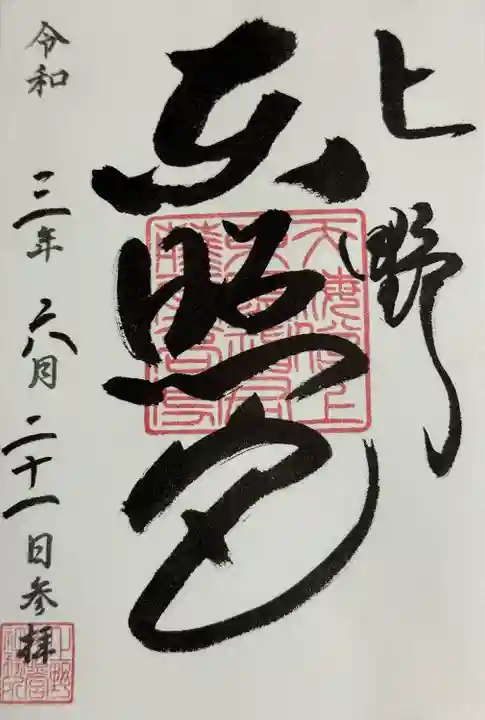 上野
東照宮
令和 三年 六月 二十一日参拝